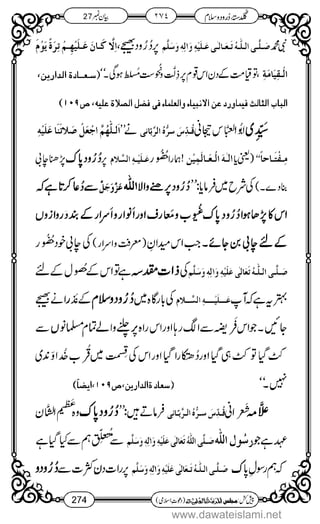 گلدستۂ درود و سلام ٢٧٤ بیان نمبر 27
نبی محمد صَلَّی اللہُ تَعَالٰی عَلَیْہِ وَاٰلِہٖ وَسَلَّم پر دُرُود بھیجے، اِلَّا کَانَ عَلَیْھِمْ تِرَۃٌ یَّوْمَ
الْقِیَامَۃِ ،تو قیامت کے دن اس قوم پر ذِلّت ونُحُوست مُسلَّط ہوگی۔‘‘ (سعادۃ الدارین،
الباب الثالث فیماورد عن الانبیاء والعلماء فی فضل الصلاۃ علیہ، ص ١٠٩)
سَیِّدِی ابُو العبَّاس تیجانی قُدِّسَ سِرُّہُ الرَّبَّانِی نے ’’اَللّٰھُمَّ اجْعَلْ صَلَاتَنَا عَلَیْہِ
مِفْتَاحاً‘‘ (یعنی یا اِلٰہَ الْعَالَمِیْن! ہمارا حُضُور عَلَیْہِ السَّلَام پر دُرُودِ پاک پڑھنا چابی
بنادے۔) کی شرح میں فرمایا: ’’دُرُود پڑھنے والا اللہ عَزَّوَجَلَّ سے دُعا کرتا ہے کہ
اس کا پڑھا ہوا دُرُودِ پاک غُیُوب و مَعارف اور اَنوار و اَسرار کے بند دروازوں
کے لئے چابی بن جائے۔ جب اس میدانِ (معرفت واسرار) کی چابی خود حُضُور
صَلَّی اللہُ تَعَالٰی عَلَیْہِ وَاٰلِہٖ وَسَلَّم کی ذاتِ مقدسہ ہے تو اس کے حُصُول کے لئے
بہتر یہ ہے کہ آپ عَلَیْہِ السَّلَام کی بارگاہ میں دُرُود و سلام کے نذرانے بھیجے
جائیں۔ جو اس فریضہ سے الگ رہا اور اس راہ پر چلنے والے تمام مسلمانوں سے
کٹ گیا تو کٹ ہی گیا اور دُھتکارا گیا اور اس کی قسمت میں قُربِ خُداوندی
نہیں۔‘‘ (سعادۃ الدارین، ص ١٠٩، ایضاً)
علّامہ شَعرانی قُدِّسَ سِرُّہُ الرَّبَّانِی فرماتے ہیں: ’’دُرُودِ پاک وہ عَظِیمُ الشَّان
عہد ہے جو رسول اللہ صَلَّی اللہُ تَعَالٰی عَلَیْہِ وَاٰلِہٖ وَسَلَّم سے مُتعلِّق ہم سے لیا گیا ہے
کہ ہم رسولِ پاک صَلَّی اللہُ تَعَالٰی عَلَیْہِ وَاٰلِہٖ وَسَلَّم پر رات دن کثرت سے دُرُود و
274
www.dawateislami.net